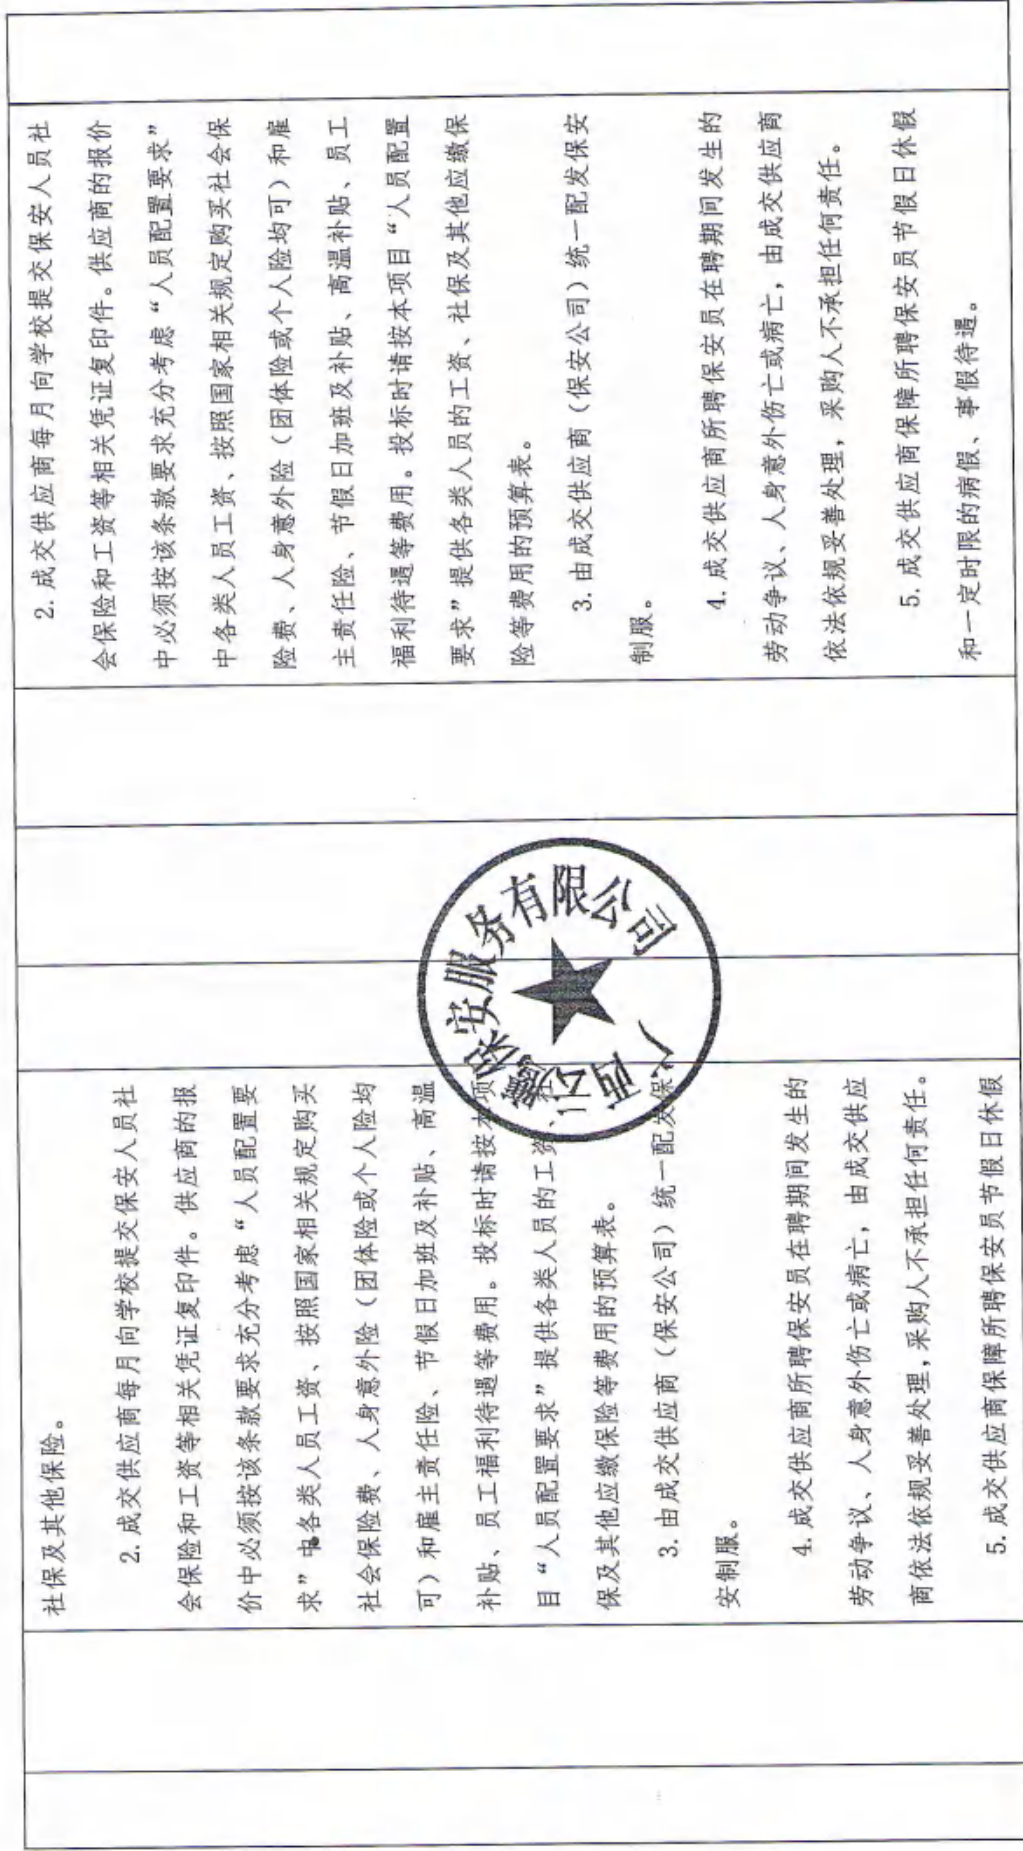 社保及其他保险。
2. 成交供应商每月向学校提交保安人员社
会保险和工资等相关凭证复印件。供应商的报
价中必须按该条款要求充分考虑“人员配置要
求”中各类人员工资、按照国家相关规定购买
社会保险费、人身意外险（团体险或个人险均
可）和雇主责任险、节假日加班及补贴、高温
补贴、员工福利待遇等费用。投标时请按本项
目“人员配置要求”提供各类人员的工资、社
保及其他应缴保险等费用的预算表。
3. 由成交供应商（保安公司）统一配发保
安制服。
4. 成交供应商所聘保安员在聘期间发生的
劳动争议、人身意外伤亡或病亡，由成交供应
商依法依规妥善处理，采购人不承担任何责任。
5. 成交供应商保障所聘保安员节假日休假
2. 成交供应商每月向学校提交保安人员社
会保险和工资等相关凭证复印件。供应商的报价
中必须按该条款要求充分考虑“人员配置要求”
中各类人员工资、按照国家相关规定购买社会保
险费、人身意外险（团体险或个人险均可）和雇
主责任险、节假日加班及补贴、高温补贴、员工
福利待遇等费用。投标时请按本项目“人员配置
要求”提供各类人员的工资、社保及其他应缴保
险等费用的预算表。
3. 由成交供应商（保安公司）统一配发保安
制服。
4. 成交供应商所聘保安员在聘期间发生的
劳动争议、人身意外伤亡或病亡，由成交供应商
依法依规妥善处理，采购人不承担任何责任。
5. 成交供应商保障所聘保安员节假日休假
和一定时限的病假、事假待遇。
保安服务有限公司